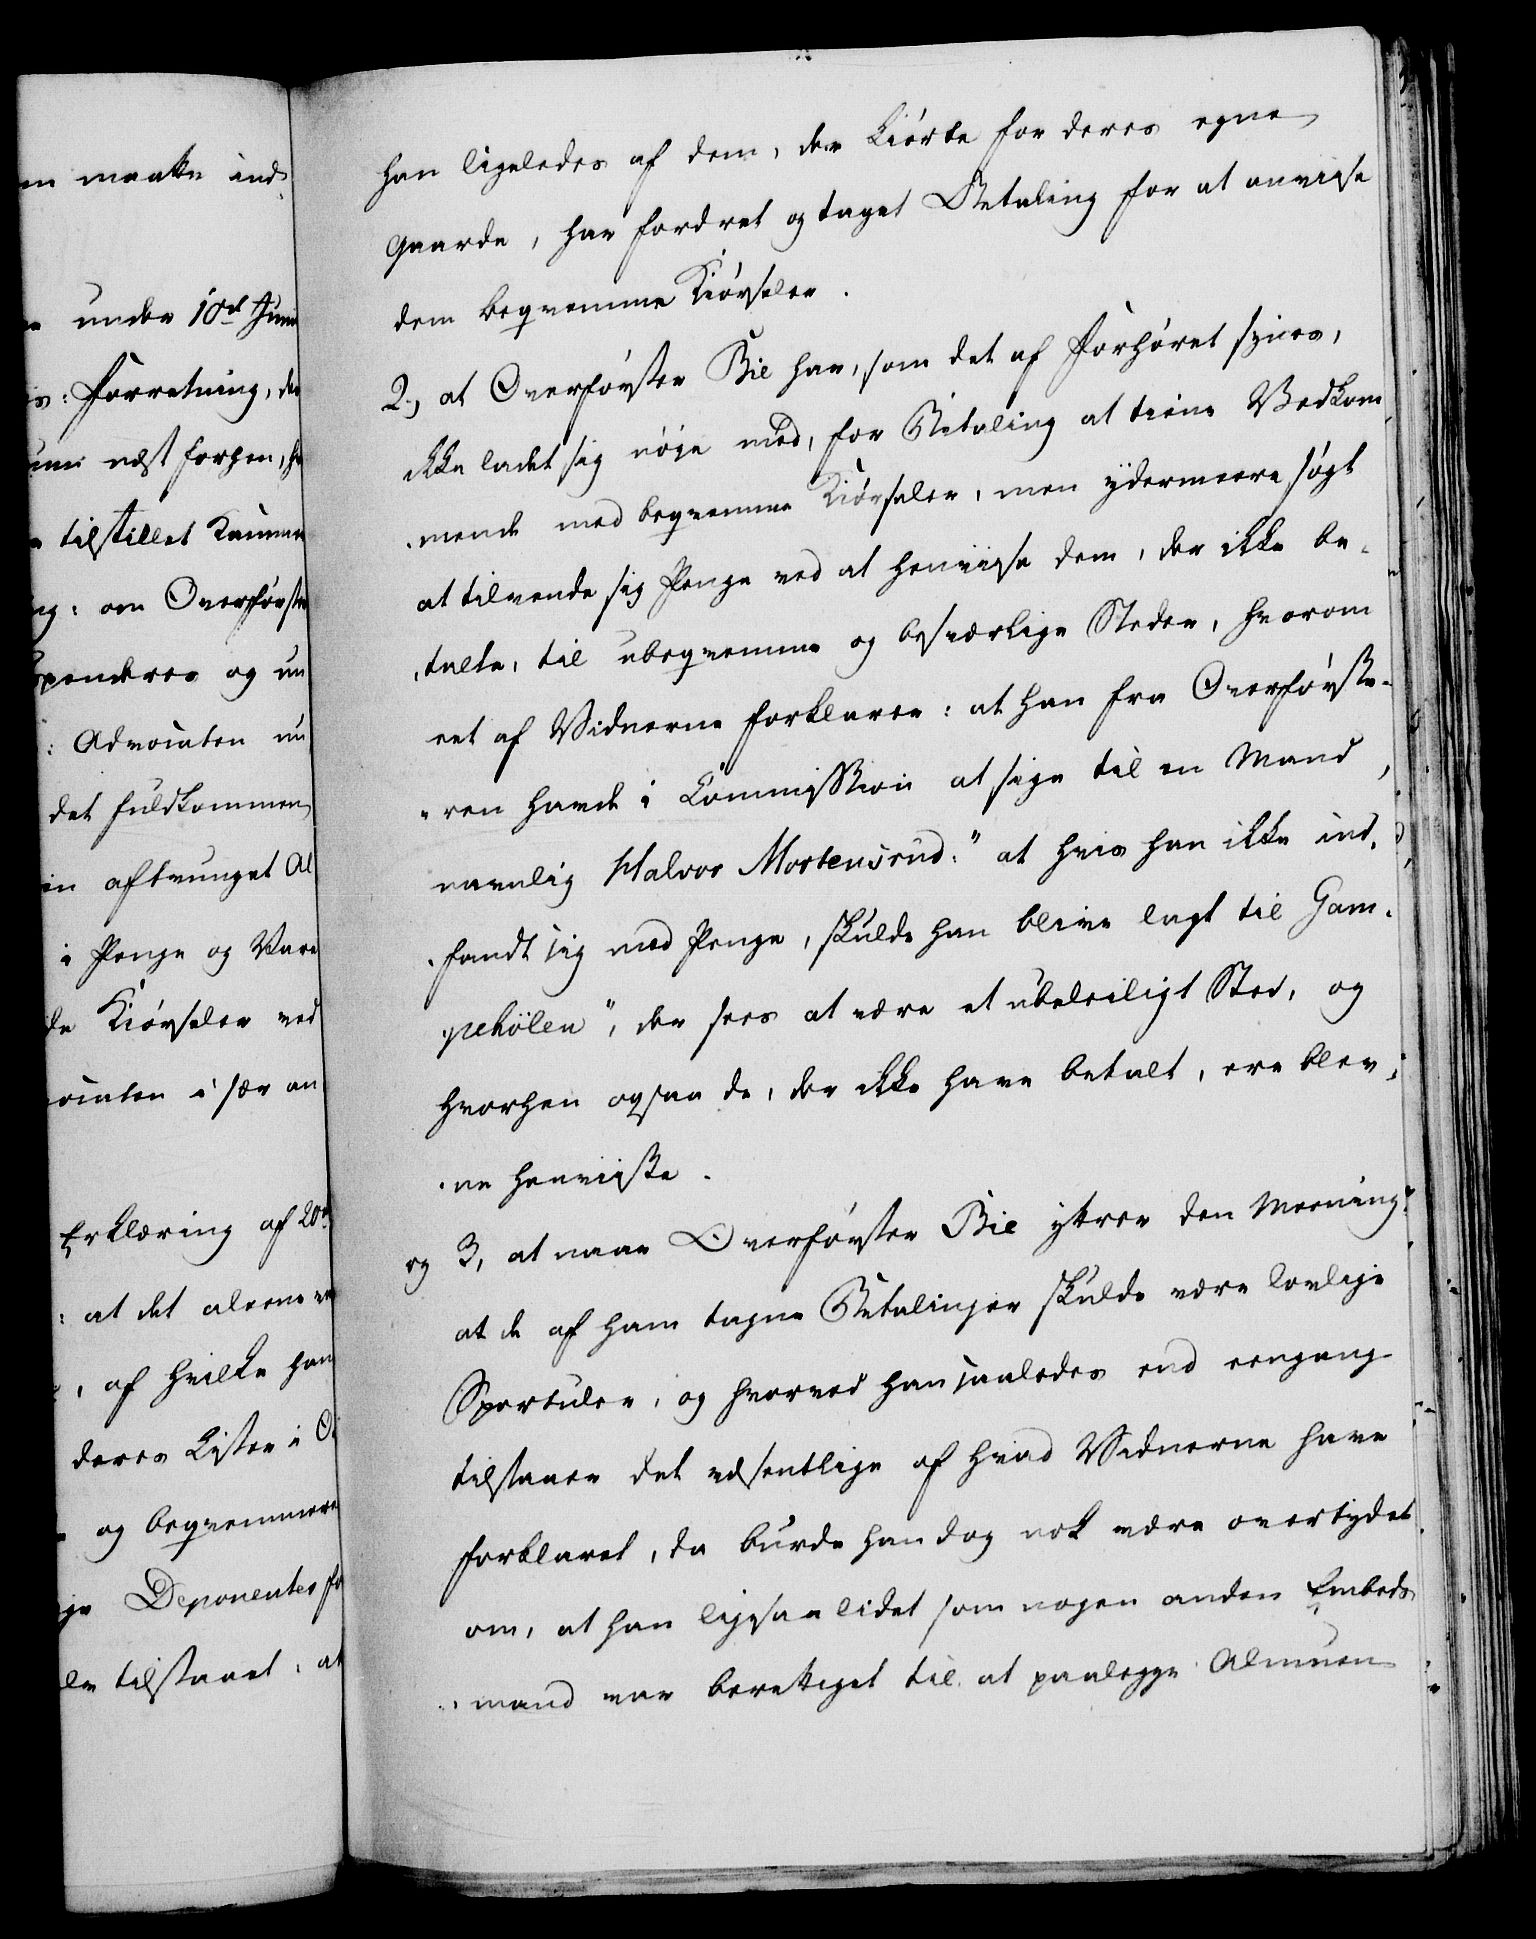 en maatte ind-
under 10de Juni
Forretning, der
næst forhen, h
tilstillet Kamme
ng: om Overførste
spenderes og un
: Advocaten un
det fuldkommen
in aftvunget Al
i Penge og Vare
de Kiørseler ved
vocaten i sær an
Erklæring af 20de
: at det aleene
, af hvilke han
deres Lister i
og beqvemmere
ge Deponentes fo
le tilstaaet, at
han ligeledes af dem, der kiørte for deres egne
Gaarde, har fordret og taget Betaling for at anviise
dem beqvemme Kiørseler.
2, at Overførster Bie har, som det af Forhøret synes,
ikke ladet sig nøje med, for Betaling at tiene Vedkom
mende med beqvemme Kiørseler, men ydermeere søgt
at tilvende sig Penge ved at henviise dem, der ikke be-
talte, til ubeqvemme og besværlige Steder, hvorom
eet af Vidnerne forklarer: at han fra Overførste-
ren havde i Commission at sige til en Mand,
navnlig Halvor Mortensrud: "at hvis han ikke ind-
fandt sig med Penge, skulde han blive lagt til Gam-
pehølen", der sees at være et ubeleiligt Sted, og
hvorhen ogsaa de, der ikke have betalt, ere blev-
ne henviiste.
og 3, at naar Overførster Bie yttrer den Meening:
at de af ham tagne Betalinger skulde være lovlige
Sportuler, og hvorved han saaledes end eengang
tilstaaer det væsentlige af hvad Vidnerne have
forklaret, da burde han dog nok være overtydet
om, at han ligesaa lidet som nogen anden Embeds
mand var berettiget til at paalegge Almuen